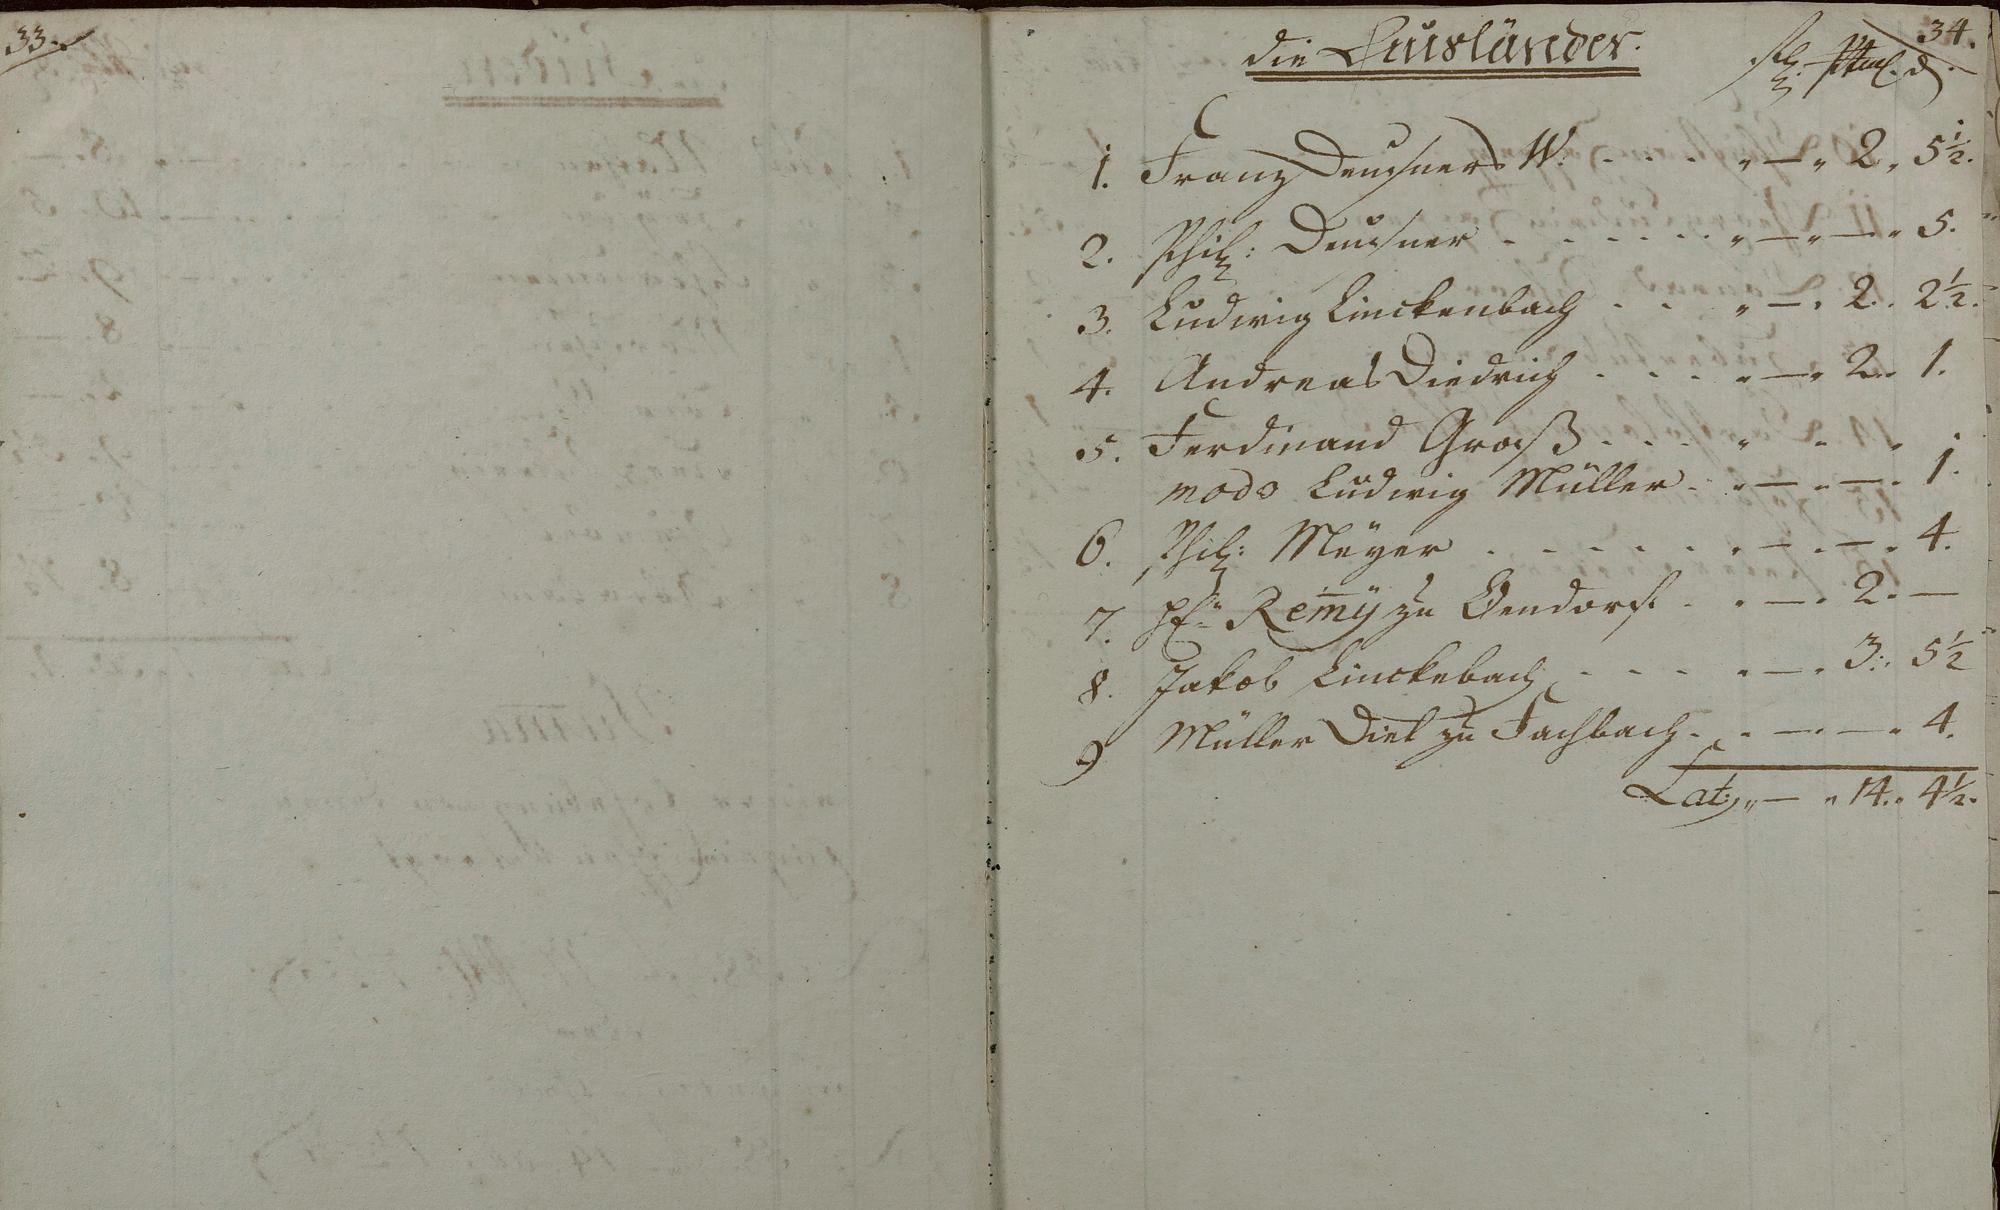 33.
34.
die Ausländer.
1. Franz Deusners W. . . . . " — " 2 " 5½.
2. Phil: Deusner . . . . . . " — " — " 5.
3. Ludwig Linckenbach . . . " — " 2 . 2½.
4. Andreas Diedrich . . . . " — " 2 . 1.
5. Ferdinand Groß . . . " " "
modo Ludwig Müller . " — " — " 1.
6. Phil: Meyer . . . . . . " — " — " 4.
7. Remy zu Bendorf . . " — " 2 " —
8. Jakob Linckebach . . . . " — " 3 " 5½
9 Müller Diel zu Fachbach . . " — " — " 4.
Lat: " — " 14 " 4½.